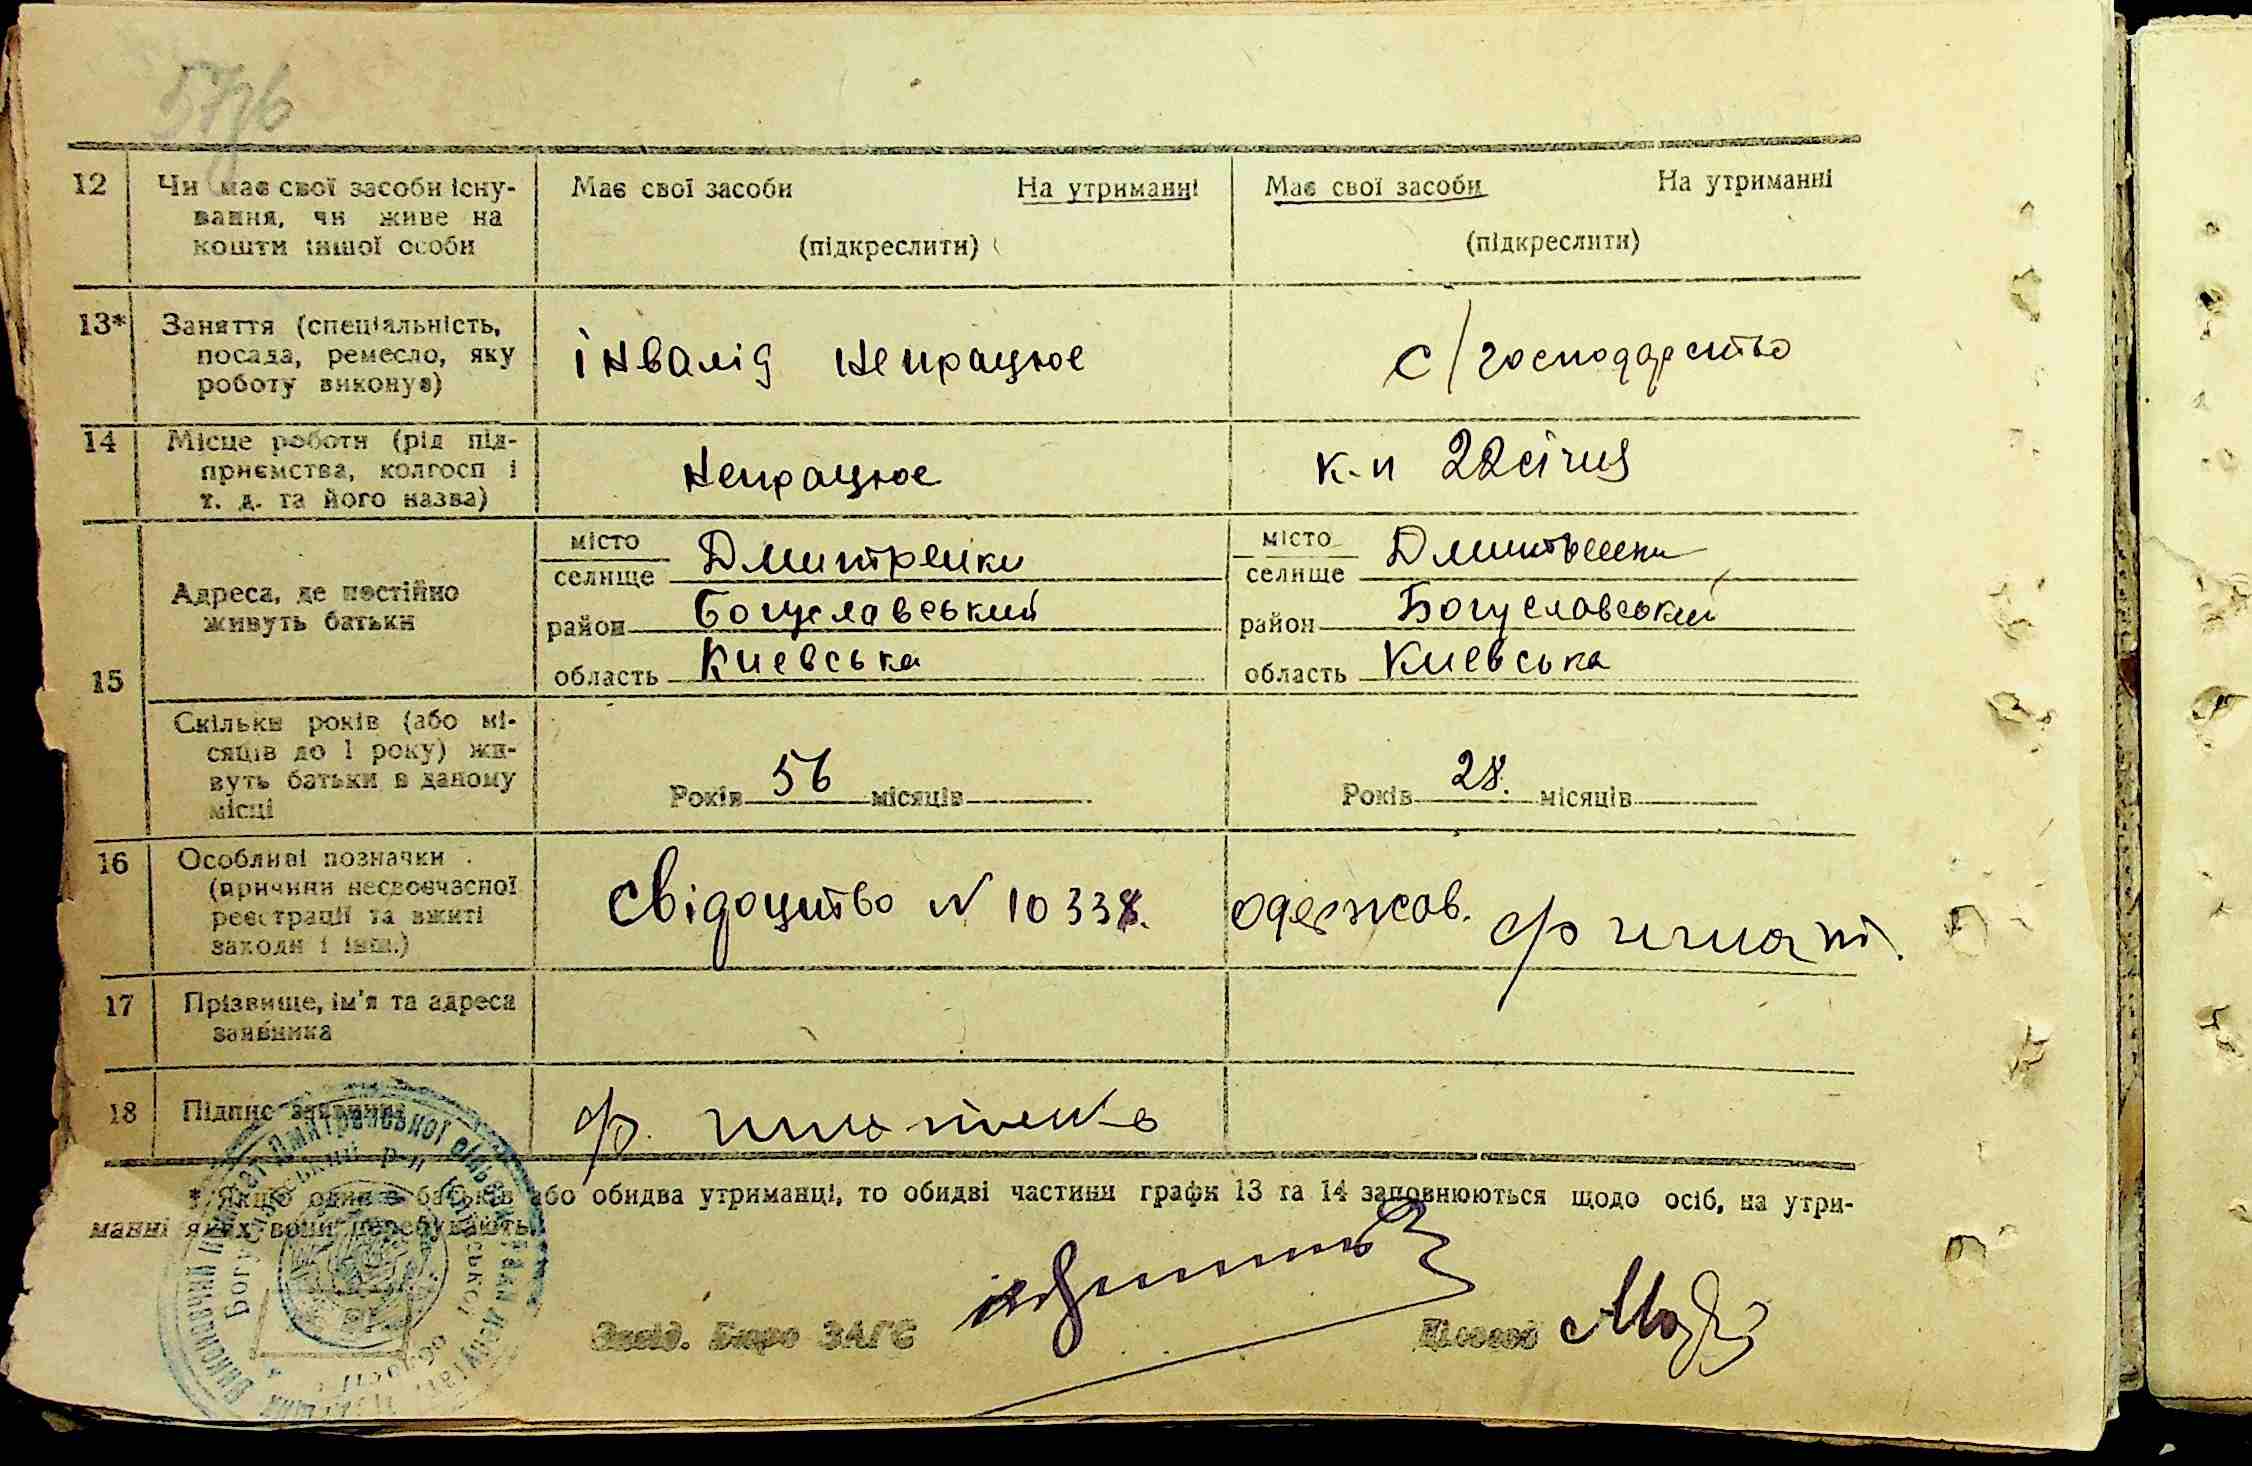 12 Чи має свої засоби існу- Має свої засоби На утриманні Має свої засоби На утриманні
вання, чи живе на
кошти іншої особи (підкреслити) (підкреслити)
13* Заняття (спеціальність,
посада, ремесло, яку інвалід непрацює с/господарство
роботу виконує)
14 Місце роботи (рід під-
приємства, колгосп і непрацює к-п 22 січня
т. д. та його назва)
15 Адреса, де постійно
живуть батьки
місто Дмитренки місто Дмитренки
селище селище
район Богуславський район Богуславський
область Киевська область Киевська
Скільки років (або мі-
сяців до 1 року) жи-
вуть батьки в даному Років 56 місяців Років 28. місяців
місці
16 Особливі позначки
(причини несвоєчасної
реєстрації та вжиті Свідоцтво N 10338. одержав.
заходи і інш.)
17 Прізвище, ім'я та адреса
заявника
18 Підпис заявника
* Якщо один з батьків або обидва утриманці, то обидві частини графи 13 та 14 заповнюються щодо осіб, на утри-
манні яких вони перебувають.
Завід. Бюро ЗАГС Діловод